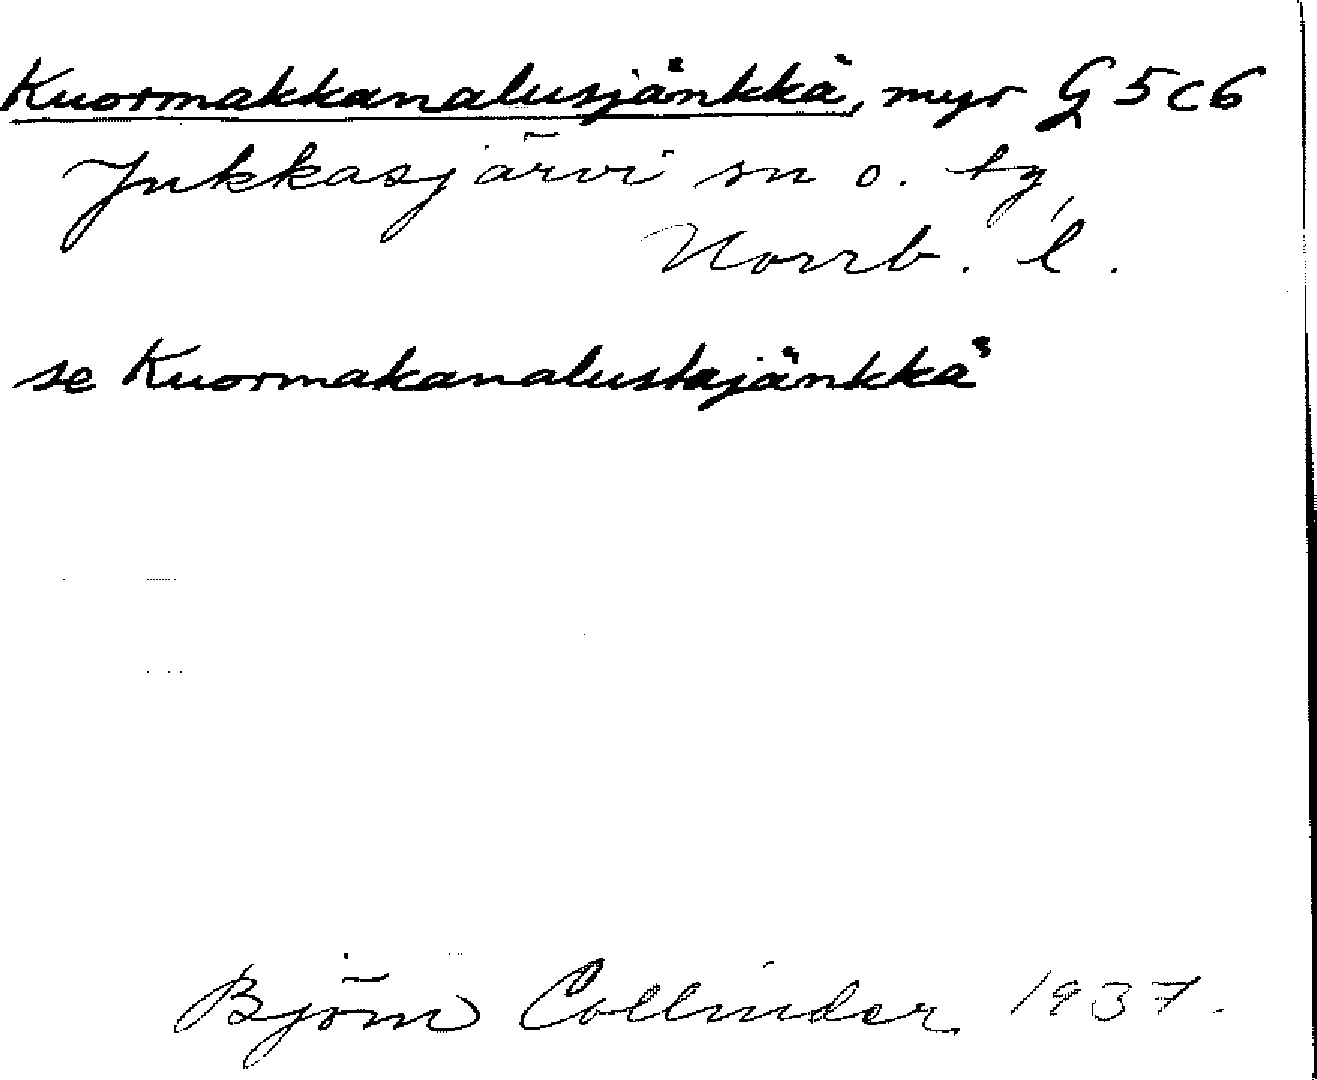 Kuormakkanalusjänkkä, myr G 5 c 6
Jukkasjärvi sn o. tg,
Norrb. l.
se Kuormakanalustajänkkä
Björn Collinder 1937.